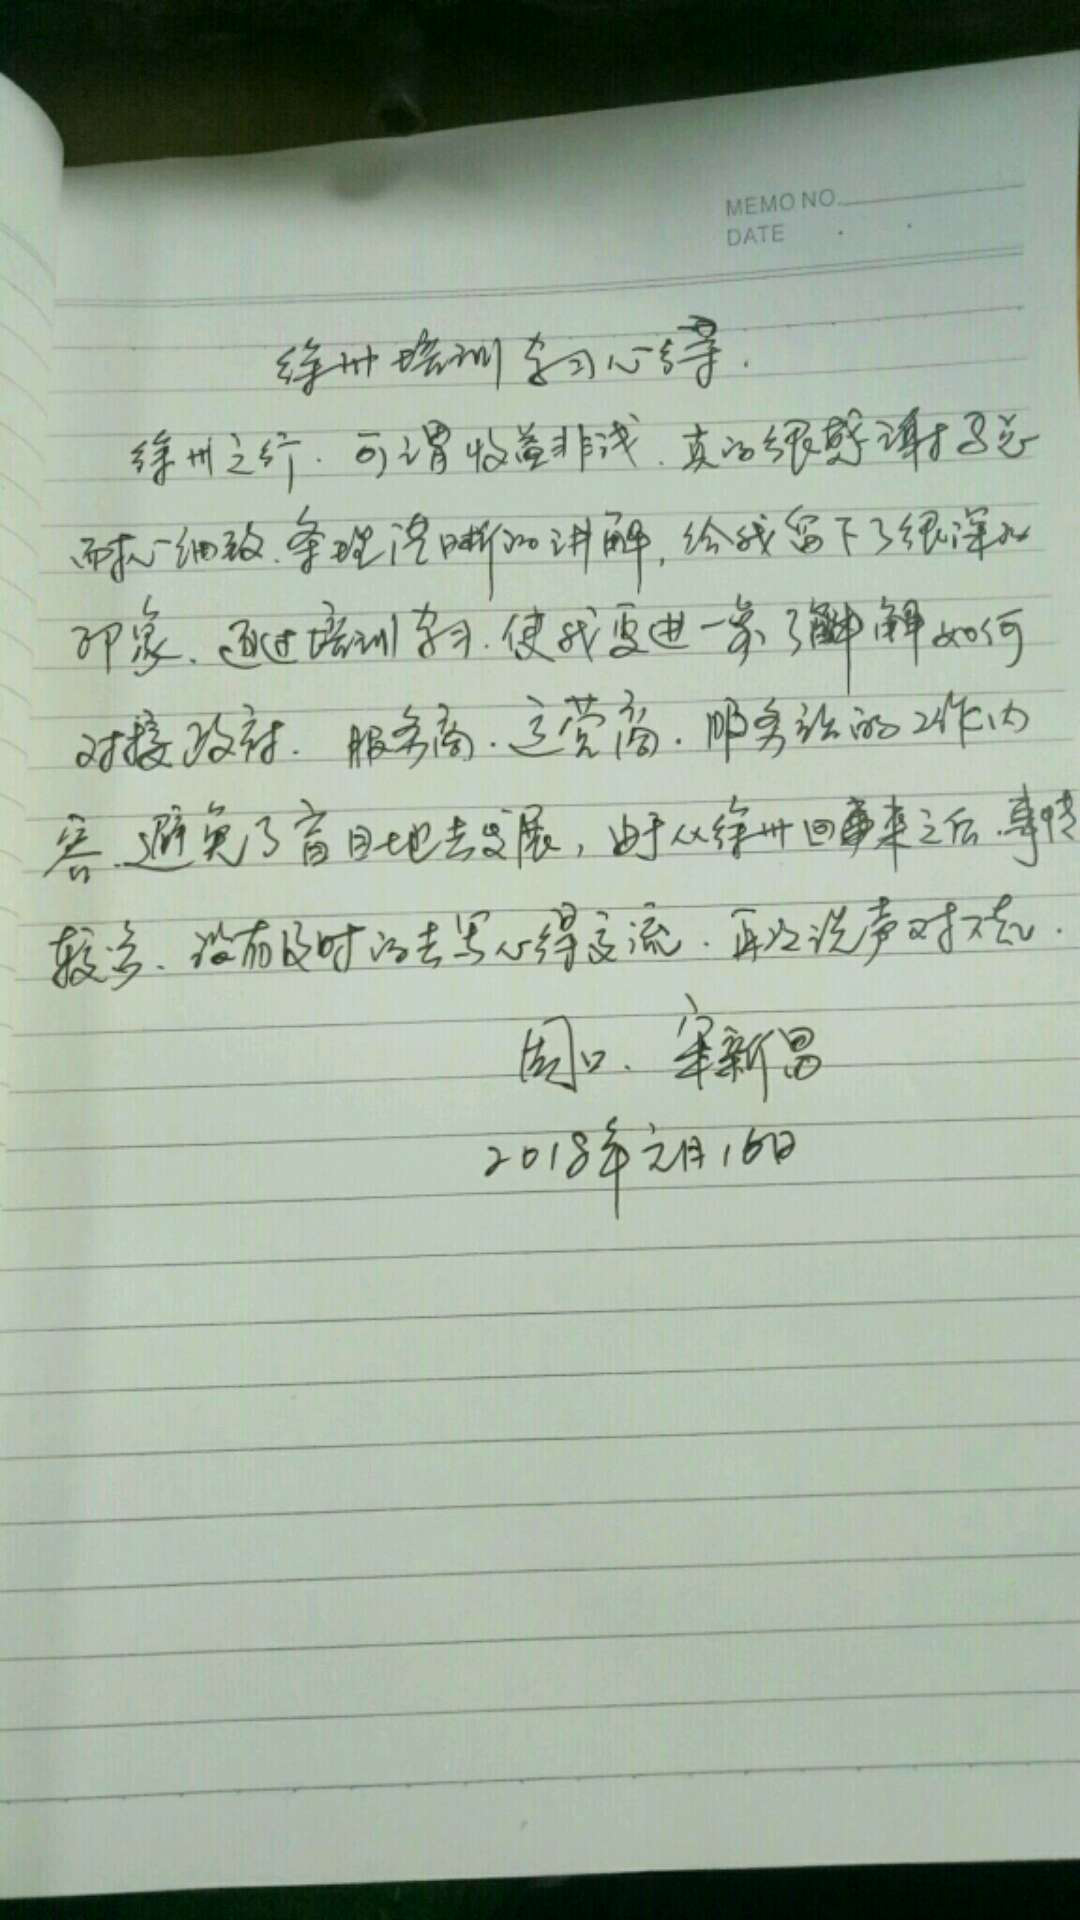 MEMO NO.
DATE . .
徐州培训学习心得.
徐州之行.可谓收益非浅.真的很感谢马总
耐心细致.条理清晰的讲解,给我留下了很深的
印象.通过培训学习.使我更进一步了解解如何
对接政府.服务商.运营商.服务站的工作内
容.避免了盲目地去发展,由于从徐州回来之后.事情
较多.没有及时的去写心得交流.再次说声对不起.
周口.宋新昌
2018年元月16日